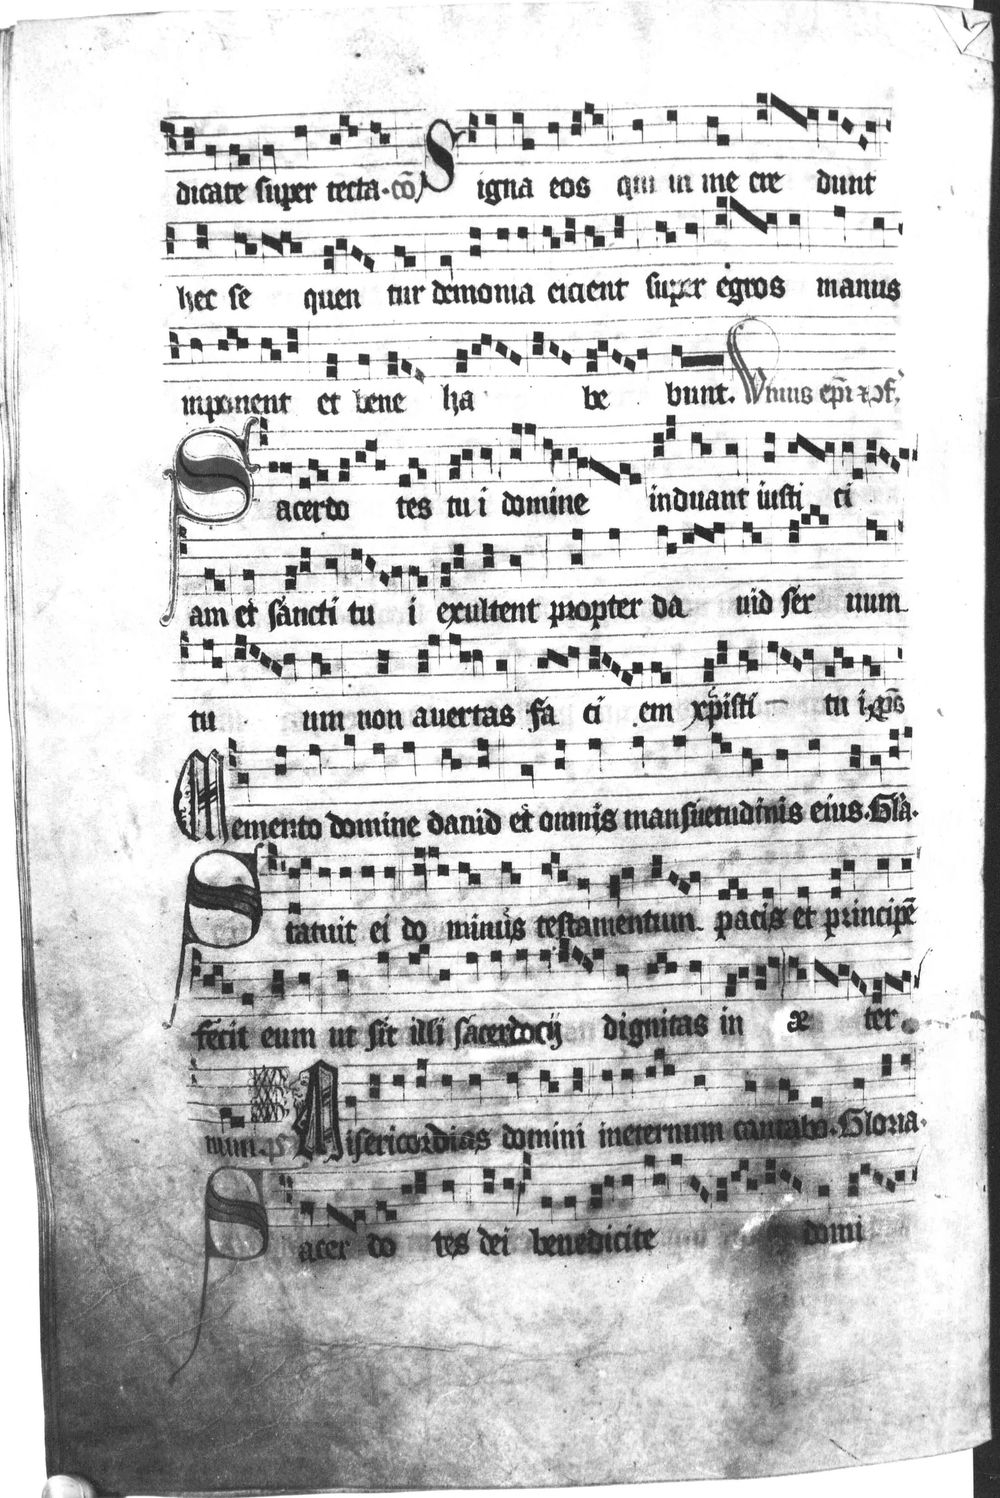 dicate super tecta. cō Signa eos qui in me cre dunt
hec se quen tur demonia eicient super egros manus
inponent et bene ha be bunt. Vnius epī
Sacerdo tes tu i domine induant iusti ci
am et sancti tu i exultent propter da uid ser uum
tu um non auertas fa ci em xpisti tu i. ps
Memento domine dauid et omnis mansuetudinis eius. Glā.
Statuit ei do minus testamentum pacis et principē
fecit eum ut sit illi sacerdocij dignitas in æ ter
num. ps Misericordias domini ineternum cantabo. Gloria.
Sacer do tes dei benedicite domi